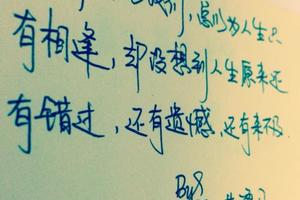 别,总以为人生只
有相逢,却没想到人生原来还
有错过,还有遗憾,还有来不及
By8